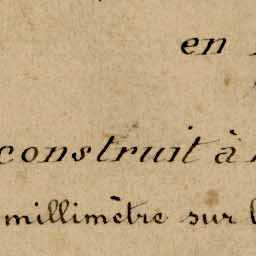 en
construit à
millimètre sur